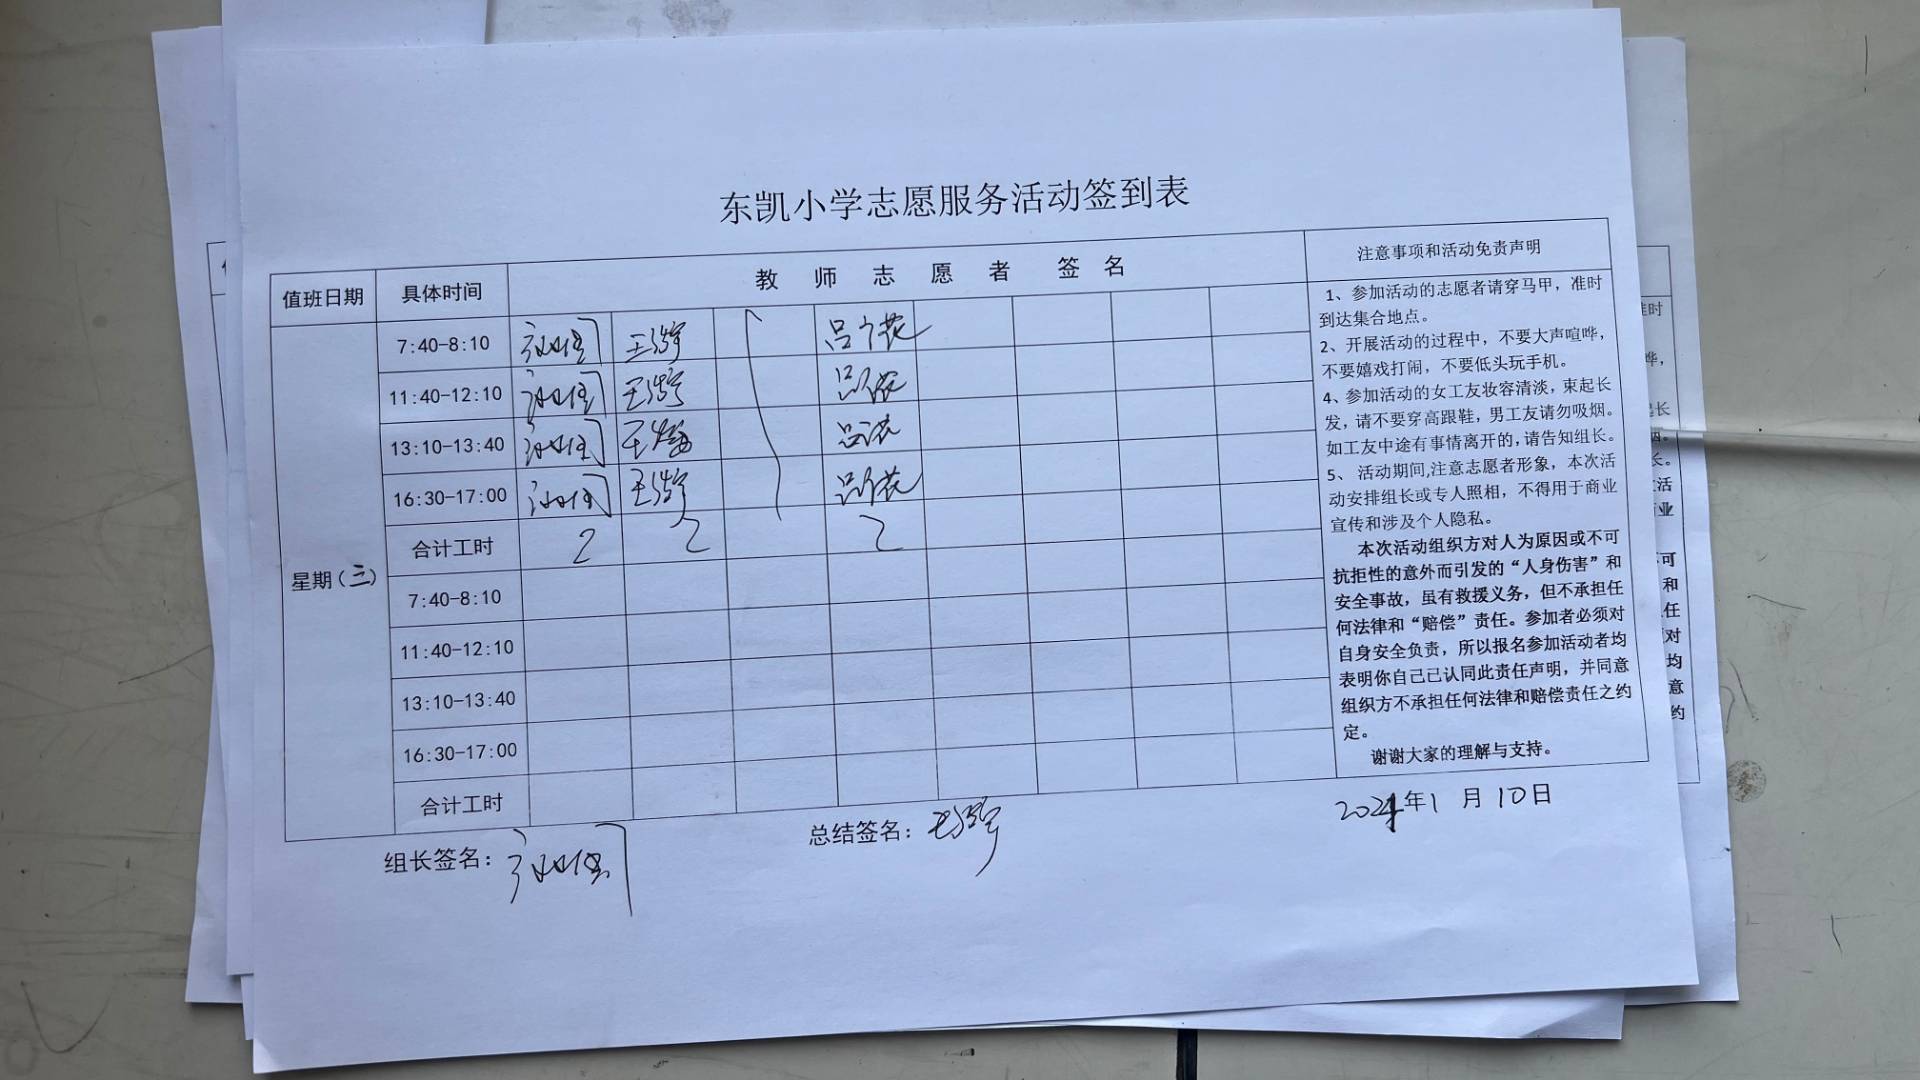 东凯小学志愿服务活动签到表
值班日期 具体时间 教师志愿者 签名 注意事项和活动免责声明
星期（三）
7:40-8:10 王
11:40-12:10 王
13:10-13:40 王
16:30-17:00 王
合计工时 2 2 2
7:40-8:10
11:40-12:10
13:10-13:40
16:30-17:00
合计工时
1、参加活动的志愿者请穿马甲，准时
到达集合地点。
2、开展活动的过程中，不要大声喧哗，
不要嬉戏打闹，不要低头玩手机。
4、参加活动的女工友妆容清淡，束起长
发，请不要穿高跟鞋，男工友请勿吸烟。
如工友中途有事情离开的,请告知组长。
5、 活动期间,注意志愿者形象，本次活
动安排组长或专人照相，不得用于商业
宣传和涉及个人隐私。
本次活动组织方对人为原因或不可
抗拒性的意外而引发的“人身伤害”和
安全事故，虽有救援义务，但不承担任
何法律和“赔偿”责任。参加者必须对
自身安全负责，所以报名参加活动者均
表明你自己已认同此责任声明，并同意
组织方不承担任何法律和赔偿责任之约
定。
谢谢大家的理解与支持。
组长签名：
总结签名：
2024年1月10日